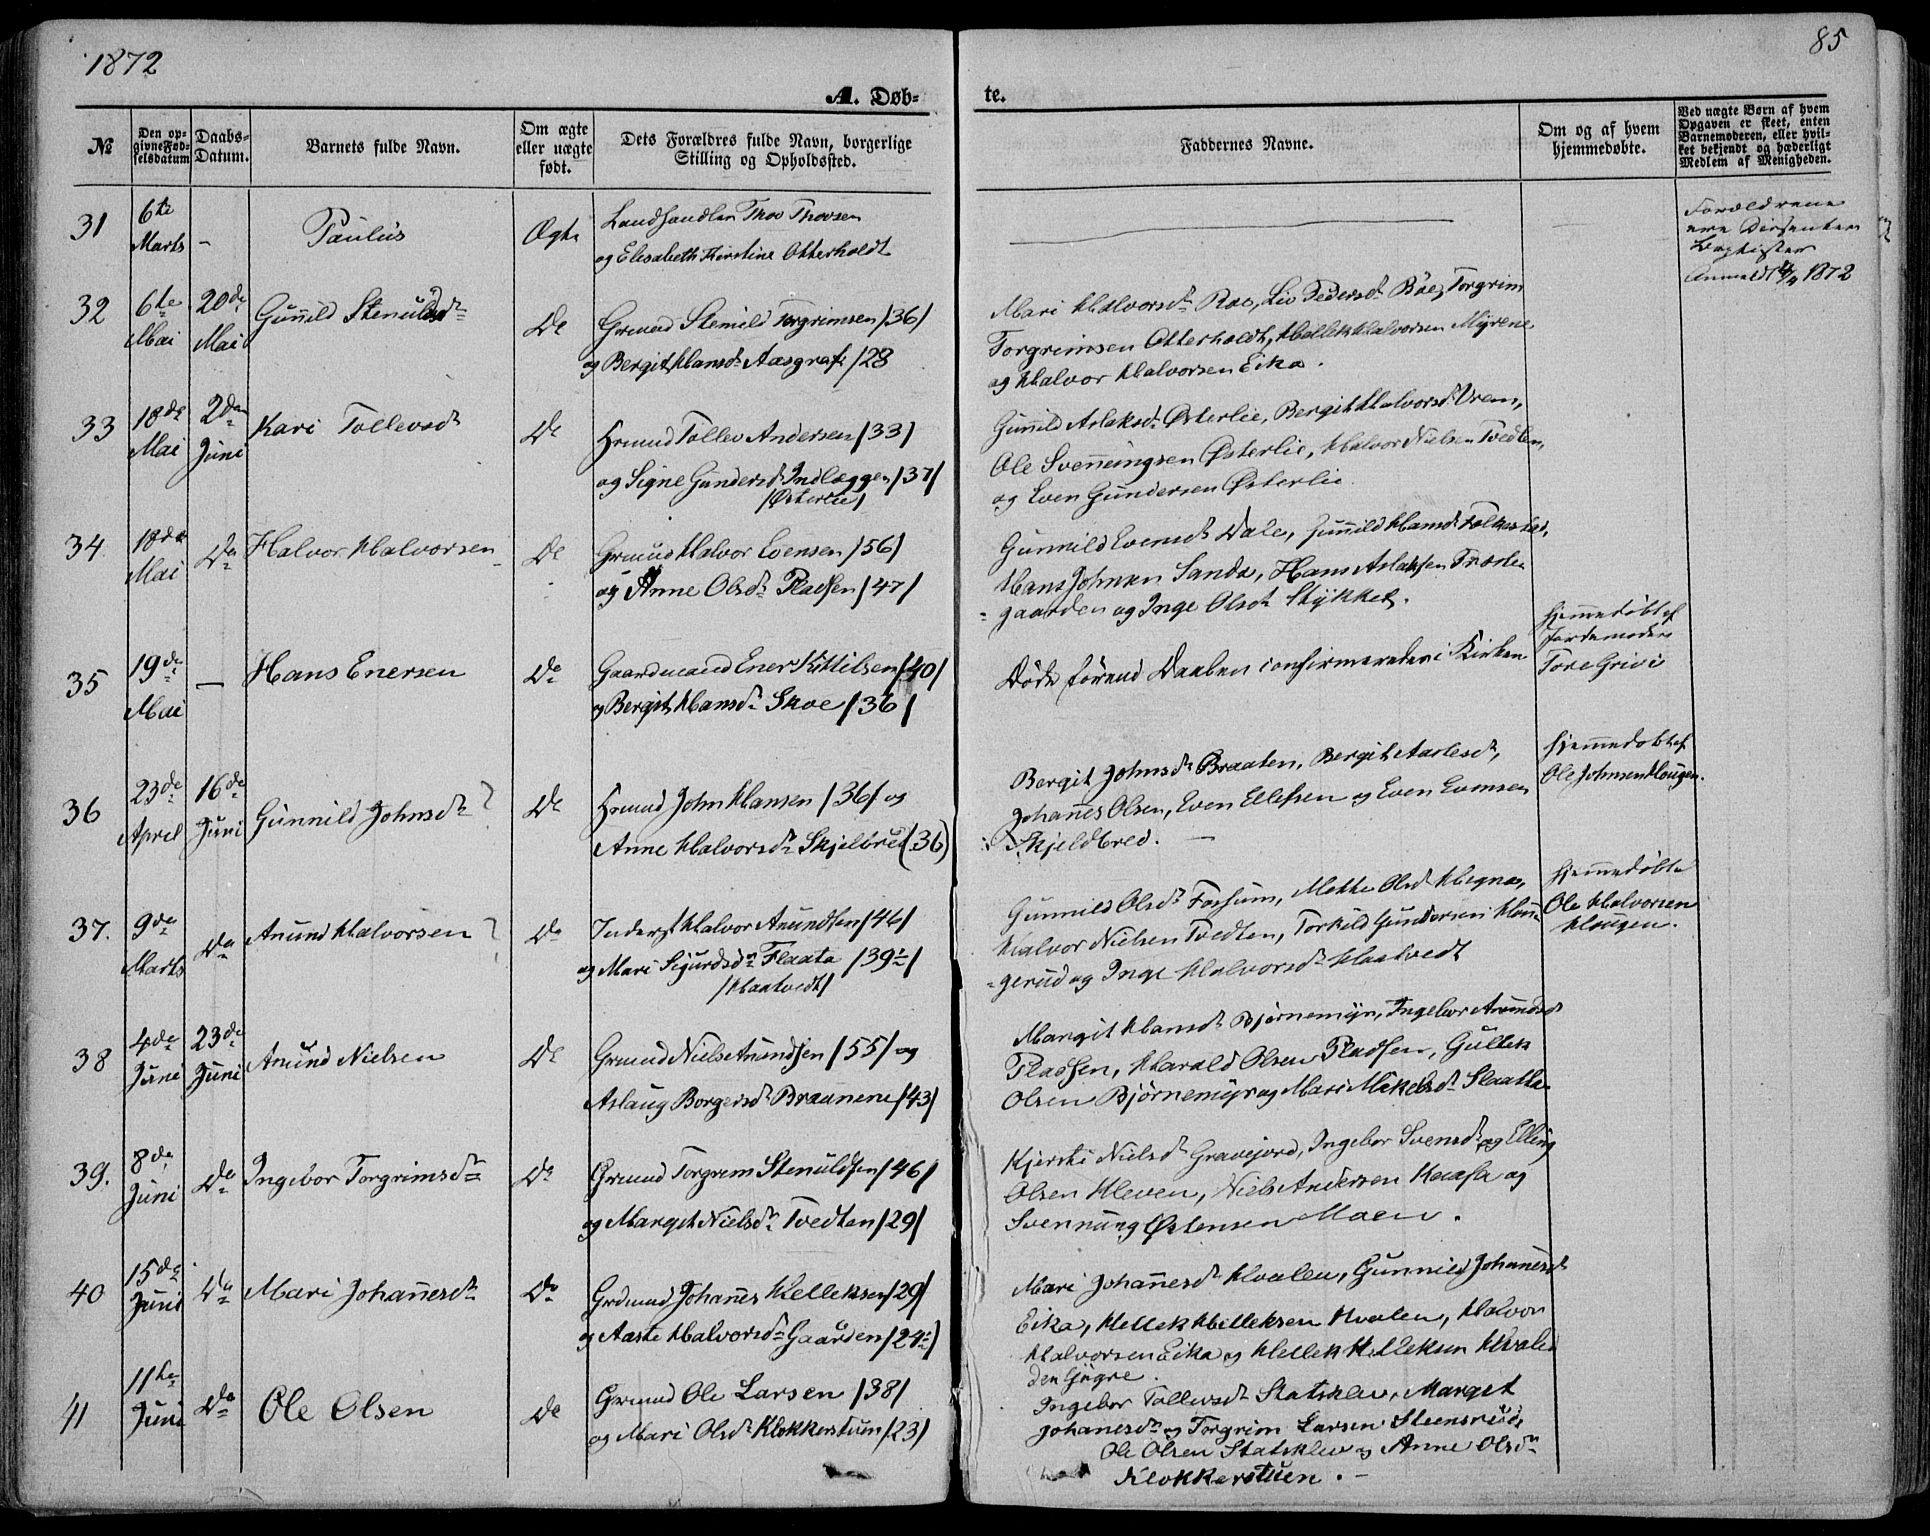 1872
85
A. Døb-
te.
No
Den op-
givne Fød-
selsdatum
Daabs-
Datum.
Barnets fulde Navn.
Om ægte
eller uægte
født.
Dets Forældres fulde Navn, borgerlige
Stilling og Opholdssted.
Faddernes Navne.
Om og af hvem
hjemmedøbte.
Ved uægte Børn af hvem
Opgaven er skeet, enten
Barnemoderen, eller hvil-
ket bekjendt og hæderligt
Medlem af Menigheden.
31
6te
Marts
-
Paulus
Ægte
Landhandler Thov Thovsen
og Elisabeth Kirstine Otterholdt
Forældrene
ere Dissenter
Baptister
Anmeldt 1872
32
6te
Mai
20de
Mai
Gunild Stenulsdt
Do
Grmd Stenuld Torgrimsen /36/
og Bergit Hansdt Aasgrav /28
Mari Halvorsdt Roe, Liv Pedersdt Bøe, Torgrim
Torgrimsen Otterholdt, Hellek Halvorsen Myrene
og Halvor Halvorsen Eika.
33
18de
Mai
2den
Juni
Kari Tollevsdt
Do
Hrmd Tollev Andersen /33/
og Signe Gundersdt Indlæggen /37/
/Østerlie/
Gunild Aslaksdt Østerlie, Bergit Halvorsdt Vreim,
Ole Svenningsen Østerlie, Halvor Nielsen Tvedten,
og Even Gundersen Østerlie.
34.
18de
Mai
Do
Halvor Halvorsen
Do
Grmd Halvor Evensen /56/
og Anne Olsdt Pladsen /47/
Gunnild Evensdt Dale, Gunnild Hansdt Folkestad,
Hans Johnsen Sanda, Hans Aslaksen Træle-
gaarden og Inge Olsdt Stykket.
35
19de
Mai
-
Hans Enersen
Do
Gaardmand Ener Kittilsen /40/
og Bergit Hansdt Skoe /36/
Døde førend Daaben confirmeredes i Kirken
Hjemmedøbt af
Jordemoder
Tore Grivi
36
23de
April
16de
Juni
Gunnild Johnsdt
Do
Hrmd John Hansen /36/ og
Anne Halvorsdt Skjelbred (36)
Bergit Johnsdt Braaten, Bergit Aaslesdt,
Johanes Olsen, Even Ellefsen og Even Evensen
Skjeldbred.
Hjemmedøbt af
Ole Johnsen Haugen.
37.
9de
Marts
Do
Anund Halvorsen
Do
Inderst Halvor Anundsen /46/
og Mari Sigurdsdt Flaata /39/
/Haatvedt/
Gunnild Olsdt Forsum, Mekke Olsdt Hegna,
Halvor Nielsen Tvedten, Torkild Gundersen Hau-
gerud og Inge Halvorsdt Haatvedt
Hjemmedøbt
Ole Halvorsen
Haugen.
38
4de
Juni
23de
Juni
Anund Nielsen
Do
Grmd Niels Anundsen /55/ og
Aslaug Borgersdt Braunene /43/
Margit Hansdt Bjørnemyr, Ingebor Anundsdt
Pladsen, Harald Olsen Pladsen, Gullek
Olsen Bjørnemyr og Mari Mikelsdt Slaatta
39.
8de
Juni
Do
Ingebor Torgrimsdt
Do
Grmd Torgrim Stenuldsen /46/
og Margit Nielsdt Tvedten /29/
Kjersti Nielsdt Gravejord, Ingebor Svensdt og Elling
Olsen Kleven, Niels Andersen Haasa og
Svennung Østensen Moen.
40
15de
Juni
Do
Mari Johanesdt
Do
Grdmd Johanes Helleksen /29/
og Aaste Halvorsdt Gaarden /24/
Mari Johanesdt Hvalen, Gunnild Johanesdt
Eika, Hellek Helleksen Hvalen, Halvor
Halvorsen Eika og Hellek Helleksen Hvalen
den Yngre.
41
11te
Juni
Do
Ole Olsen
Do
Grmd Ole Larsen /38/
og Mari Olsdt Klokkerstuen /23/
Ingebor Tollevsdt Statsklev, Margit
Johanesdt og Torgrim Larsen Steensrud,
Ole Olsen Statsklev og Anne Olsdt
Klokkerstuen.